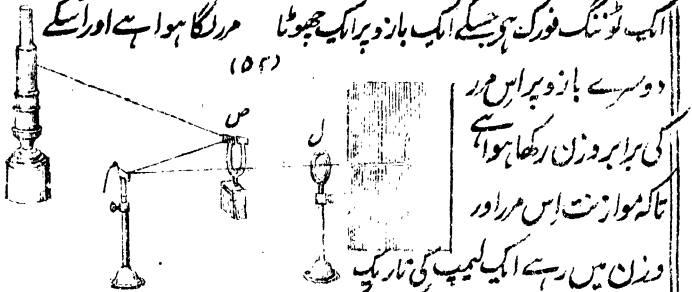 ایک ٹوننگ فورک ہی جسکے ایک بازو پر ایک چھوٹا مرر لگا ہوا ہے اور اسکے
(۵۲)
دوسرے بازو پر اس مرر
کی برابر وزن رکھا ہوا ہے
تاکہ موازنت اِس مرر اور
وزن میں رہے ایک لیمپ کی تاریک
ص
ل